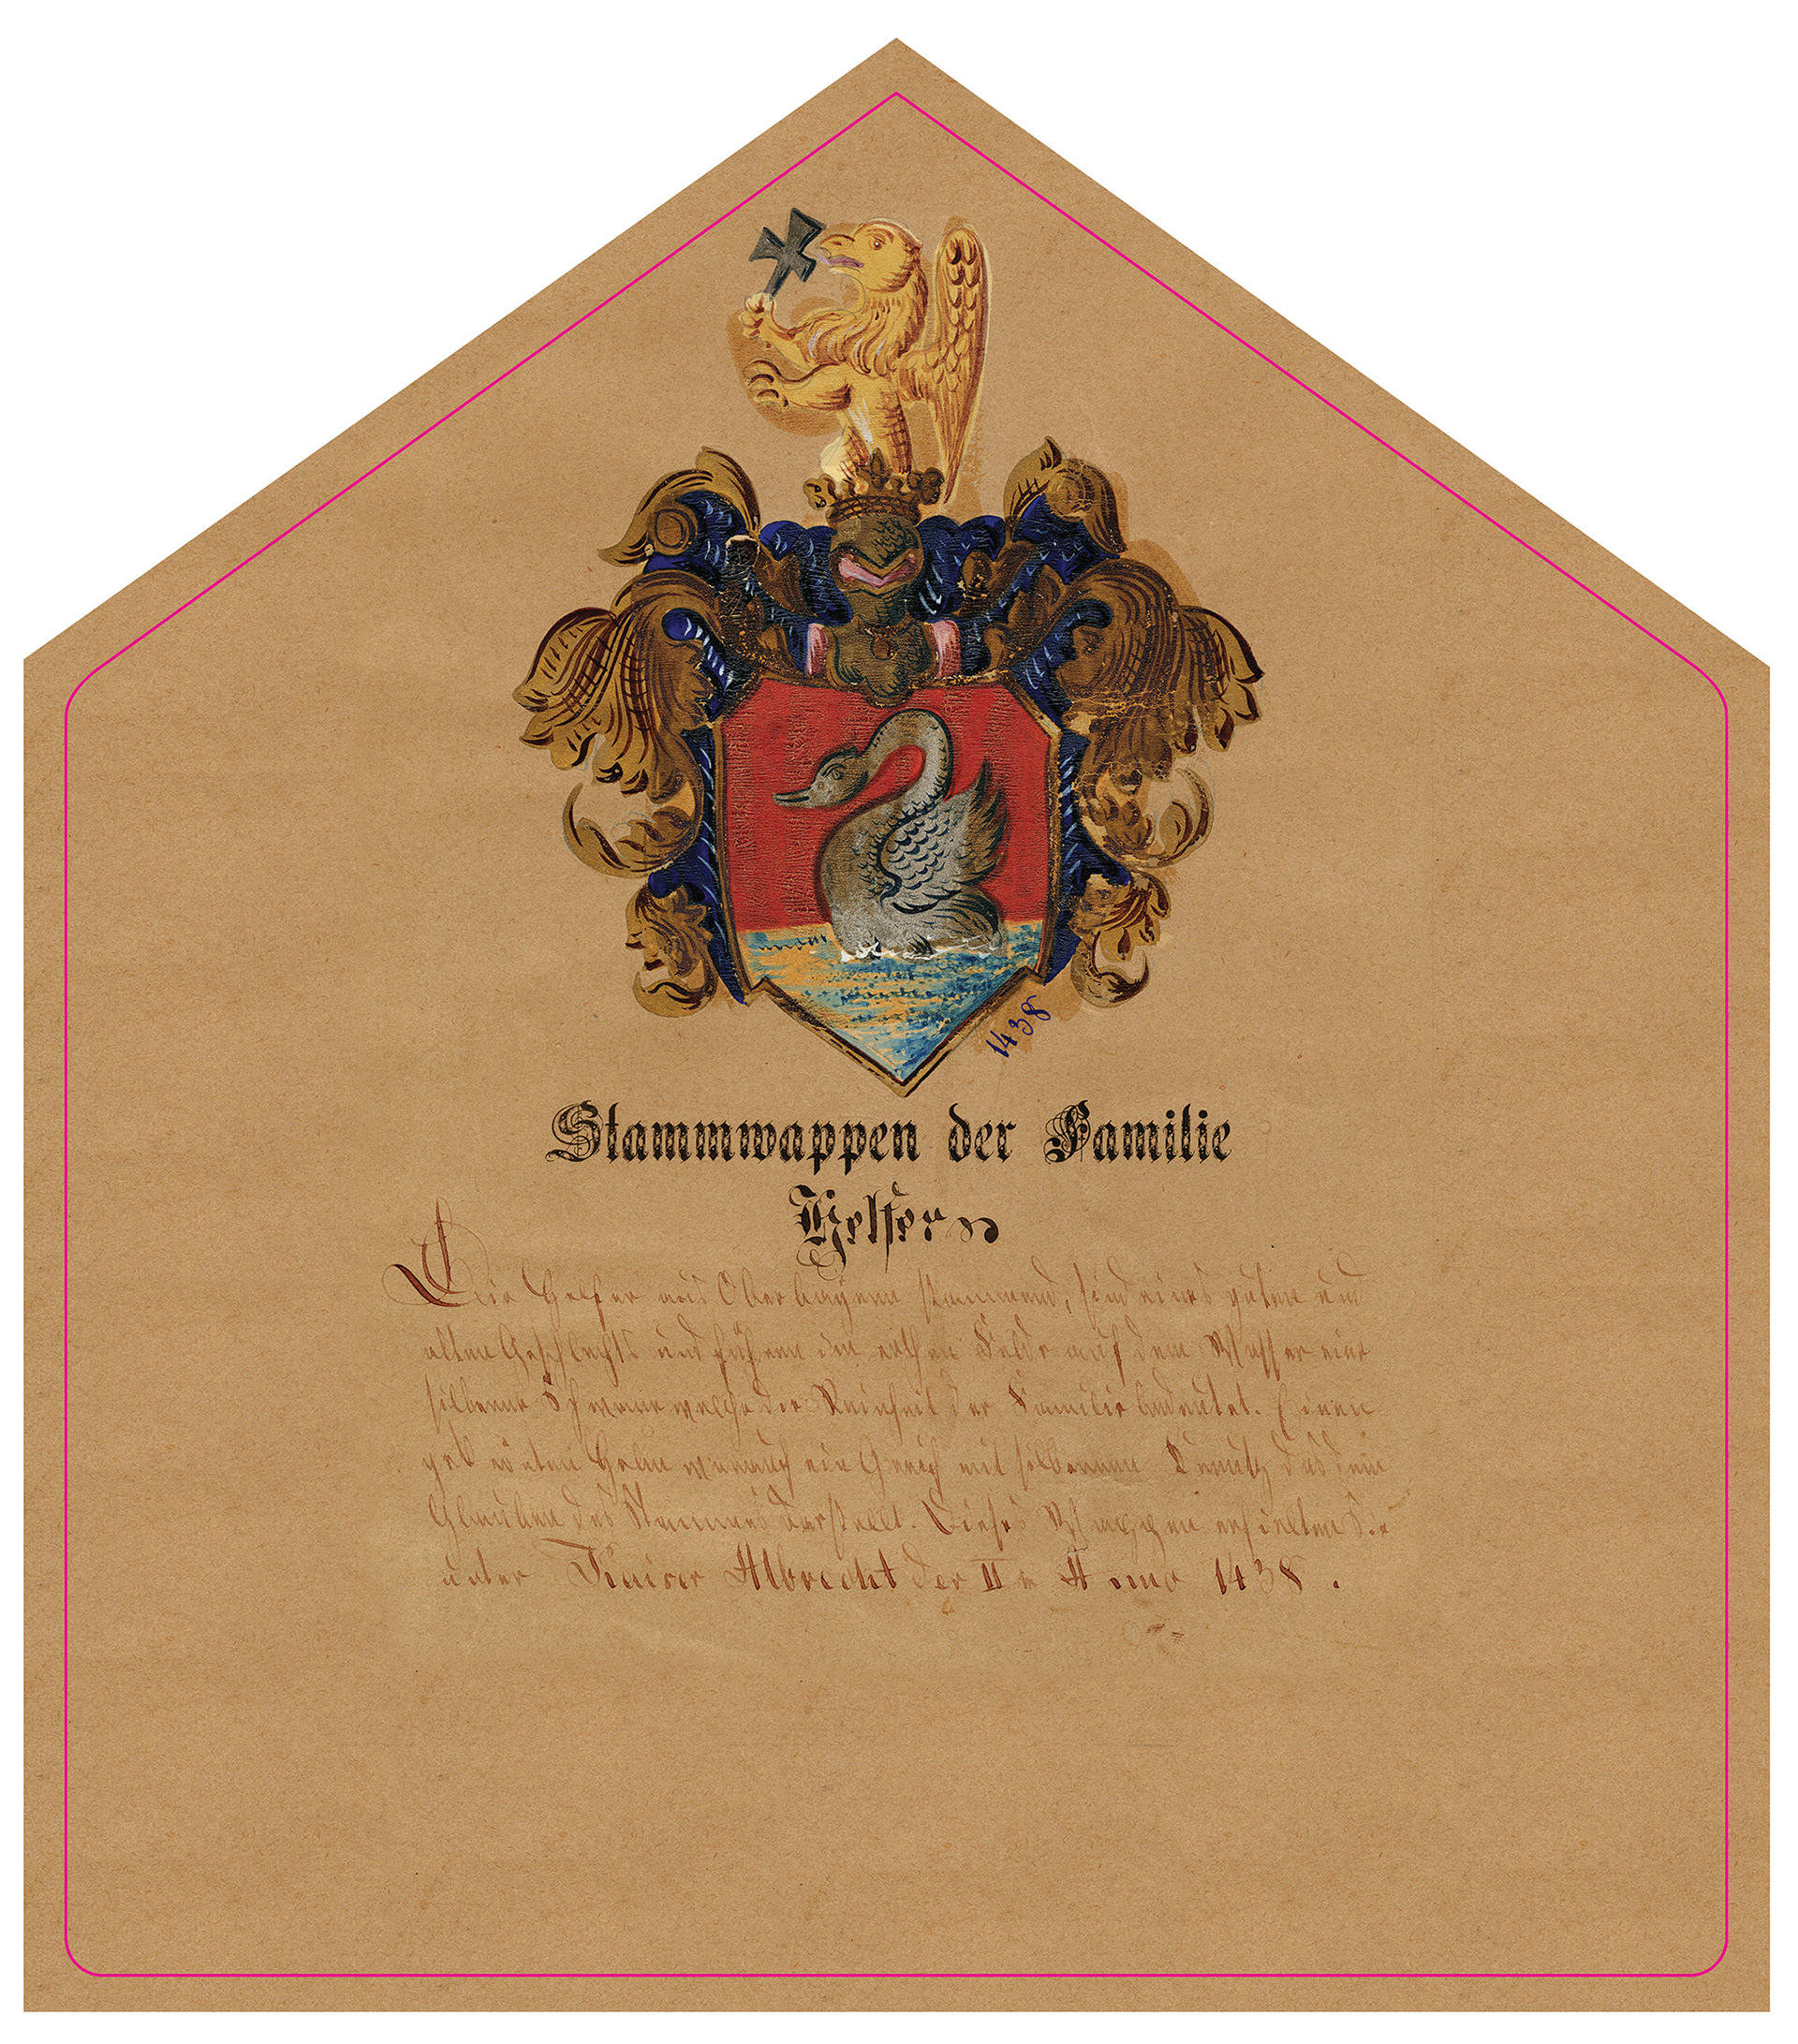 1438
Stammwappen der Familie
Helfer
Die Helfer aus Oberbayern stammend, sind eines guten und
alten Geschlechts und führen im rothen Felde auf dem Wasser eine
silberne welche die Reinheit der Familie bedeutet. Einen
Helm ein Greif mit silbernem Kreutz das dem
Glauben des Stammes darstellt. Dieses Wappen erhielten Sie
unter Kaiser Albrecht der II Anno 1438.